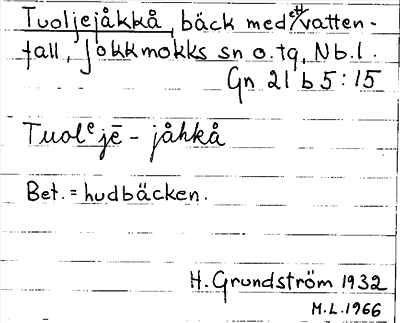 Tuoljejåkkå, bäck med ett vatten-
fall, Jokkmokks sn o. tg, Nb. l.
Gn 21 b 5:15
Tuolᵉjē - jåhkå
Bet. = hudbäcken.
H. Grundström 1932
M.L. 1966